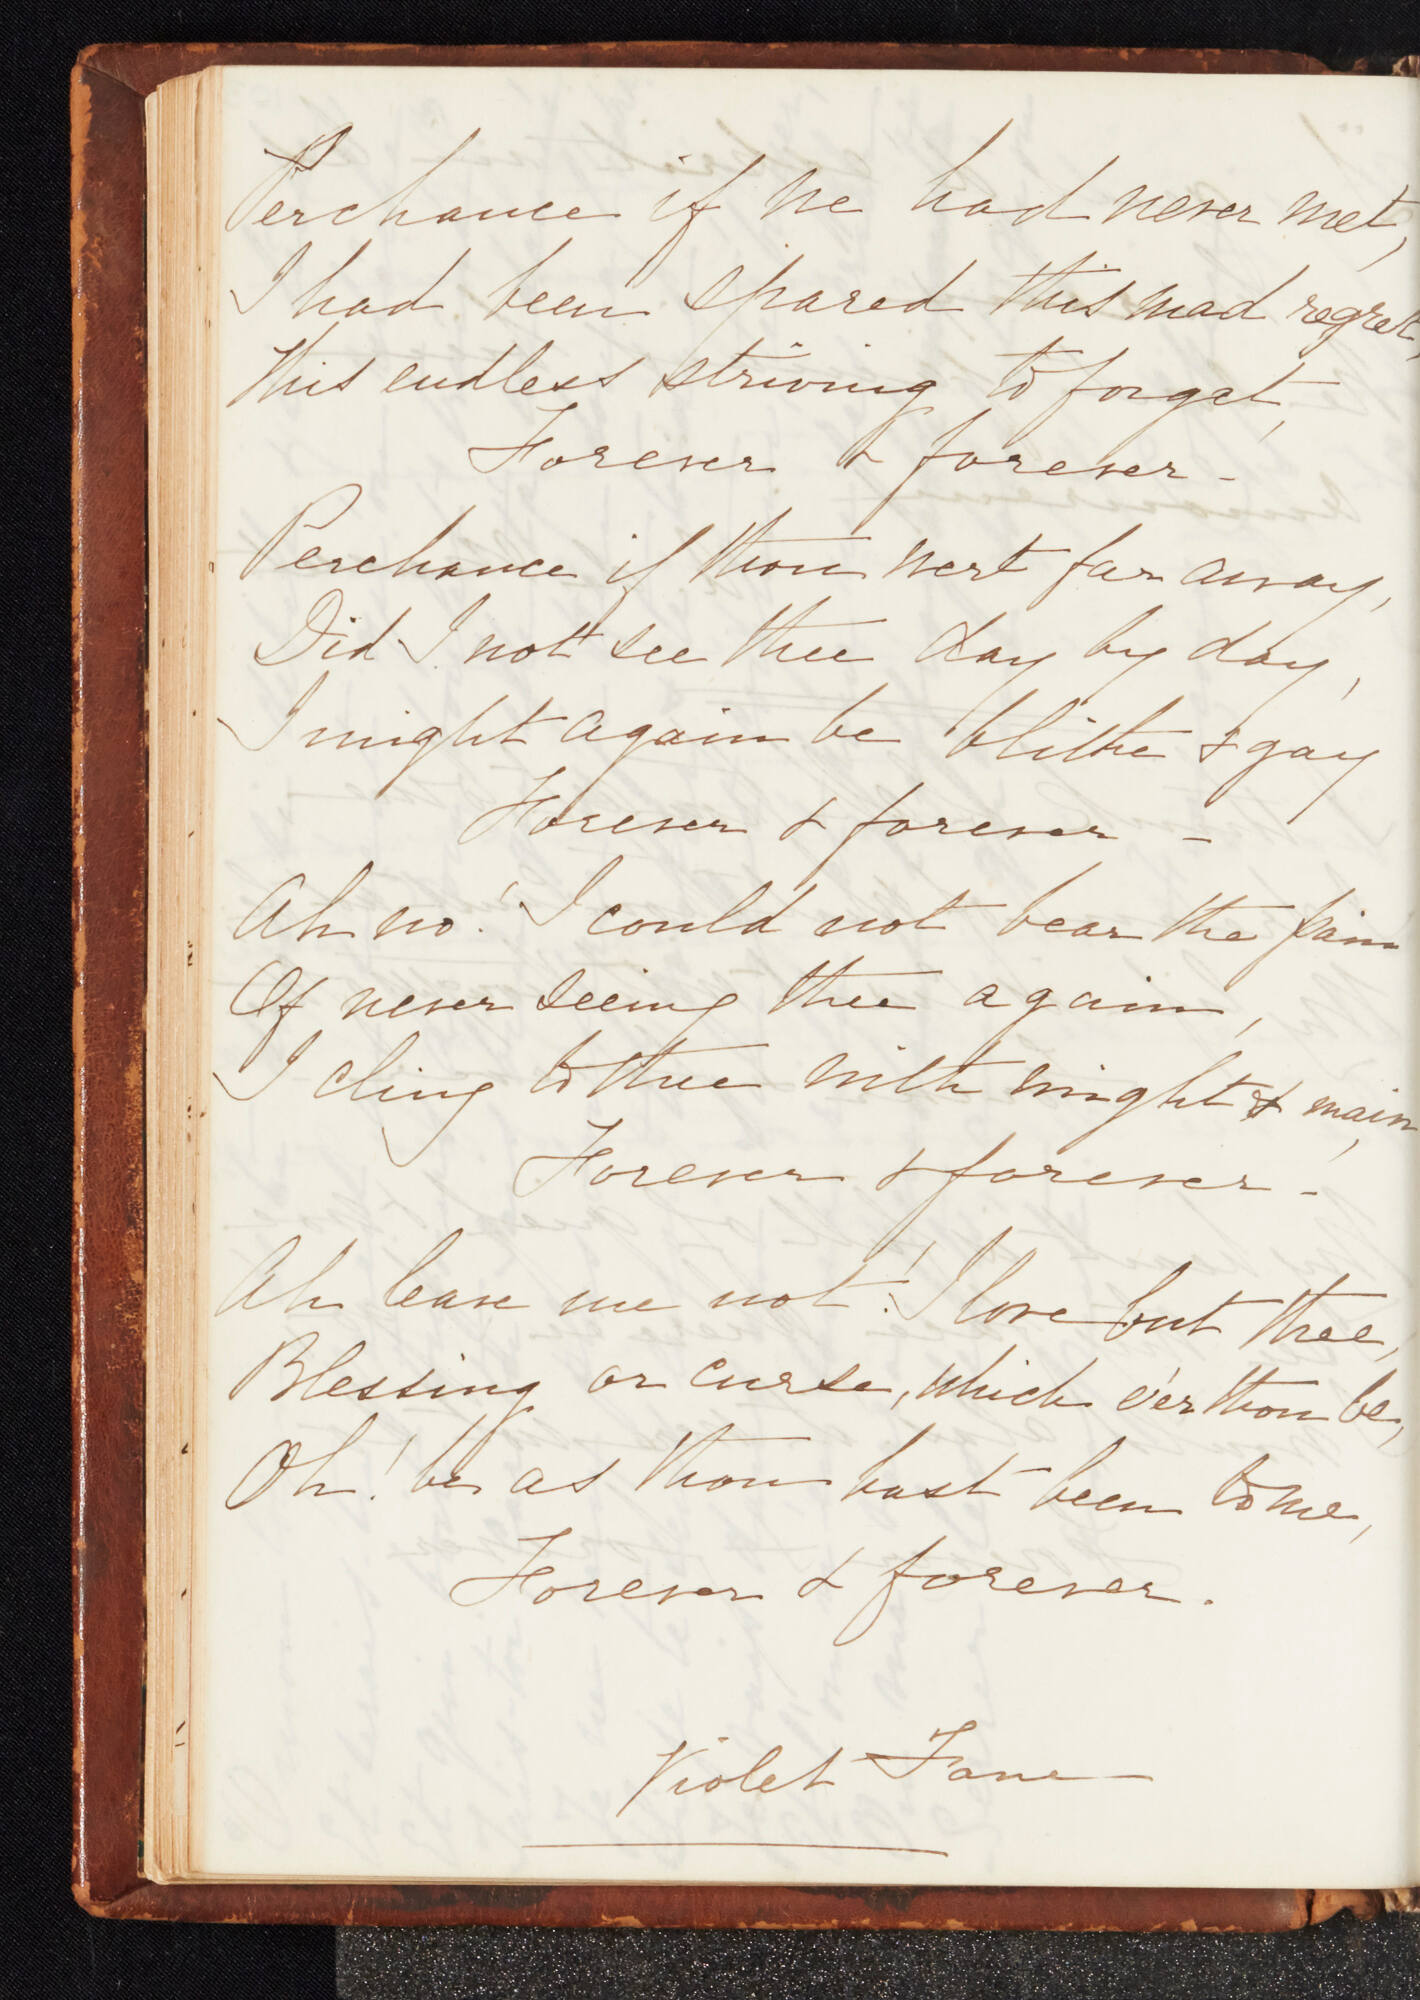 Perchance if we had never met,
I had been spared this mad regret,
This endless striving to forget,
Forever & forever -
Perchance if thou wert far away,
Did I not see thee day by day,
I might again be blithe & gay
Forever & forever -
Ah no! I could not bear the pain
Of never seeing thee again,
I cling to thee with might & main,
Forever & forever -
Ah leave me not! I love but thee,
Blessing or curse, which e'er thou be,
Oh! be as thou hast been to me,
Forever & forever.
Violet Fane